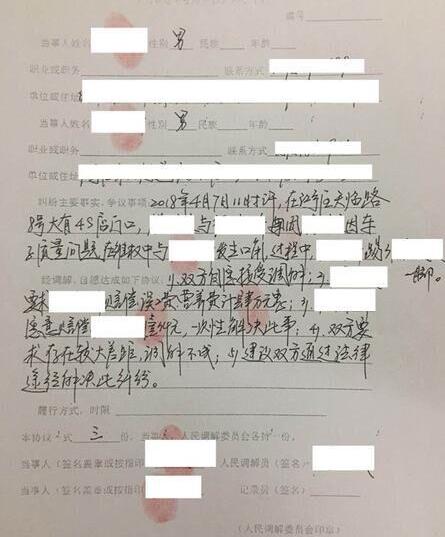 编号
当事人姓名 性别 男 民族 年龄
职业或职务 联系方式
单位或住址
当事人姓名 性别 男 民族 年龄
职业或职务 联系方式
单位或住址
纠纷主要事实、争议事项: 2018年4月7日11时许,在 路
8号大有4S店门口, 与 因车
质量问题,在维权中与 发生口角,过程中, 踢了
一脚。
经调解,自愿达成如下协议: 1)双方同意接受调解;2)
要求 赔偿误工费营养费计肆万元;3)
愿意赔偿 壹仟元,一次性解决此事;4)双方要
求存在较大差距,调解不成;5)建议双方通过法律
途径解决此纠纷。
履行方式、时限
本协议一式 三 份,当事人、人民调解委员会各持一份。
当事人(签名盖章或按指印) 人民调解员(签名)
当事人(签名盖章或按指印) 记录员(签名)
(人民调解委员会印章)